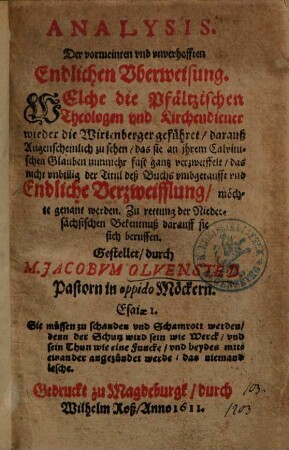 ANALYSIS.
Der vormeinten vnd vnverhofften
Endlichen Vberweisung.
WElche die Pfältzischen
Theologen vnd Kirchendiener
wieder die Wirtenberger geführet / darauß
Augenscheinlich zu sehen / das sie an jhrem Calvini-
schen Glauben nunmehr fast gantz verzweiffelt / das
nicht vnbillig der Titul deß Buchs vmbgetaufft vnd
Endliche Verzweifflung / möch-
te genant werden. Zu rettung der Nieder-
sächsischen Bekentnuß darauff sie
sich beruffen.
Gestellet / durch
M. JACOBVM OLVENSTED.
Pastorn in oppido Möckern.
Esaiæ 1.
Sie müssen zu schanden vnd Schamrott werden /
denn der Schutz wird sein wie Werck / vnd
sein Thun wie eine Funcke / vnd beydes mits
einander angezündet werde / das niemand
lesche.
Gedruckt zu Magdeburgk / durch
Wilhelm Roß / Anno 1611.
103.